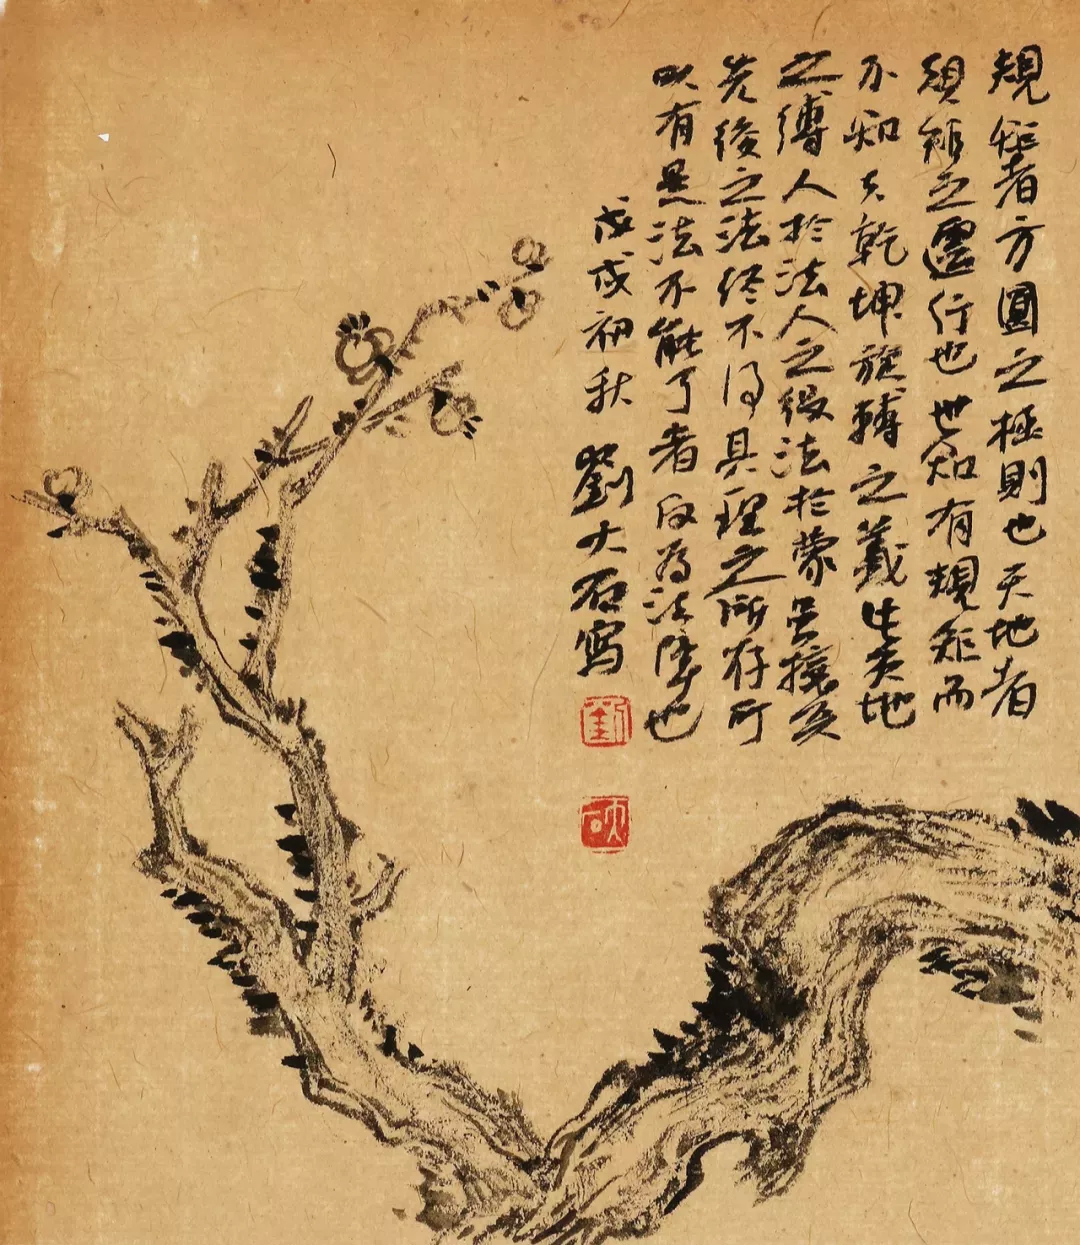 規矩者方圓之極則也天地者
規矩之運行也世知有規矩而
不知夫乾坤旋轉之義此天地
之縛人於法人之役法於蒙攘
先後之法終不得其理之所存所
以有是法不能了者反為法障也
戊戌初秋劉大石寫
劉
硕